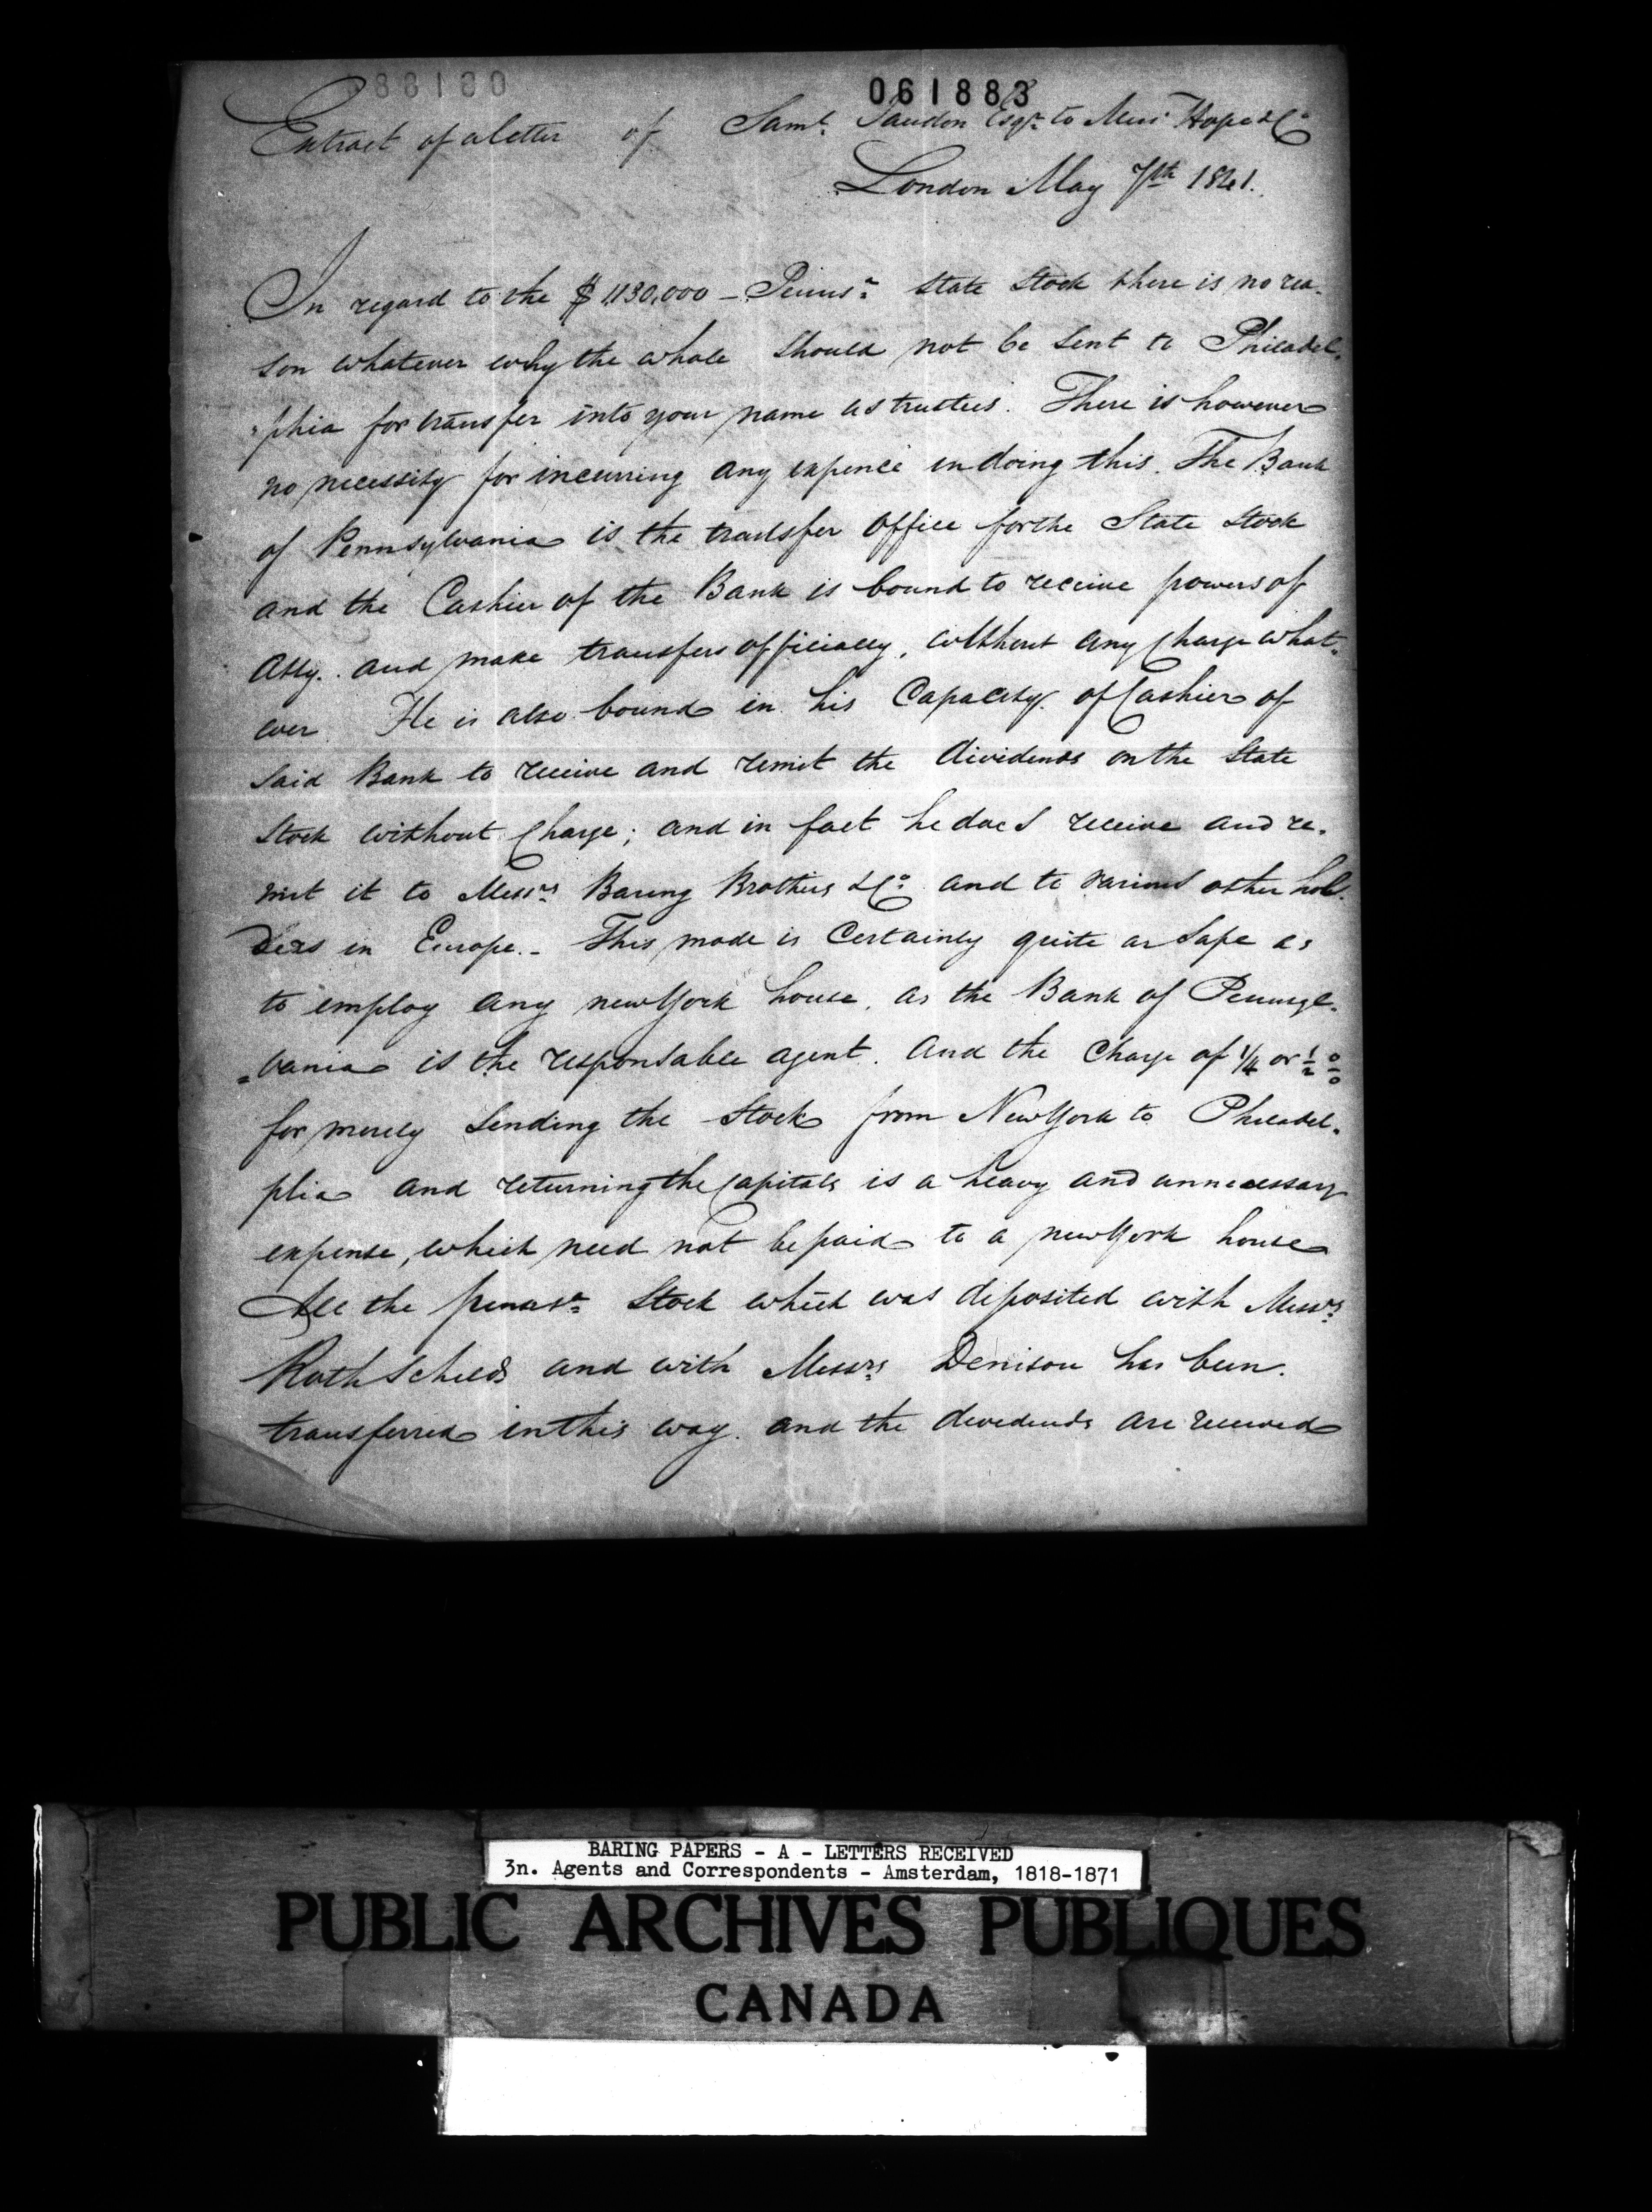 061883
Extract of a letter of Saml. Jaudon Esqr. to Messs. Hope & Co.
London May 7th 1841.
In regard to the $ 1,130,000 — Pennsa. State Stock there is no rea-
son whatever why the whole should not be sent to Philadel-
"phia for transfer into your name as trustees. There is however
no necessity for incurring any expence in doing this. The Bank
of Pennsylvania is the transfer office for the State Stock
and the Cashier of the Bank is bound to receive powers of
Atty. and make transfers officially, without any Charge what-
ever. He is also bound in his Capacity of Cashier of
Said Bank to receive and remit the dividends on the State
Stock without Charge; and in fact he does receive and re-
mit it to Messrs. Baring Brothers & Co. and to various other hol-
ders in Europe.- This mode is Certainly quite as Safe as
to employ any new York house, as the Bank of Pennsyl-
=vania is the responsable agent. and the Charge of 1/4 or 1/2 %
for merely Sending the Stock from New York to Philadel-
phia and returning the Capitals is a heavy and unnecessary
expense, which need not be paid to a new York house
All the pennsa. Stock which was deposited with Messrs.
Rothschilds and with Messrs. Denison has been
transferred in this way. and the dividends are received
BARING PAPERS - A - LETTERS RECEIVED
3n. Agents and Correspondents - Amsterdam, 1818-1871
PUBLIC ARCHIVES PUBLIQUES
CANADA